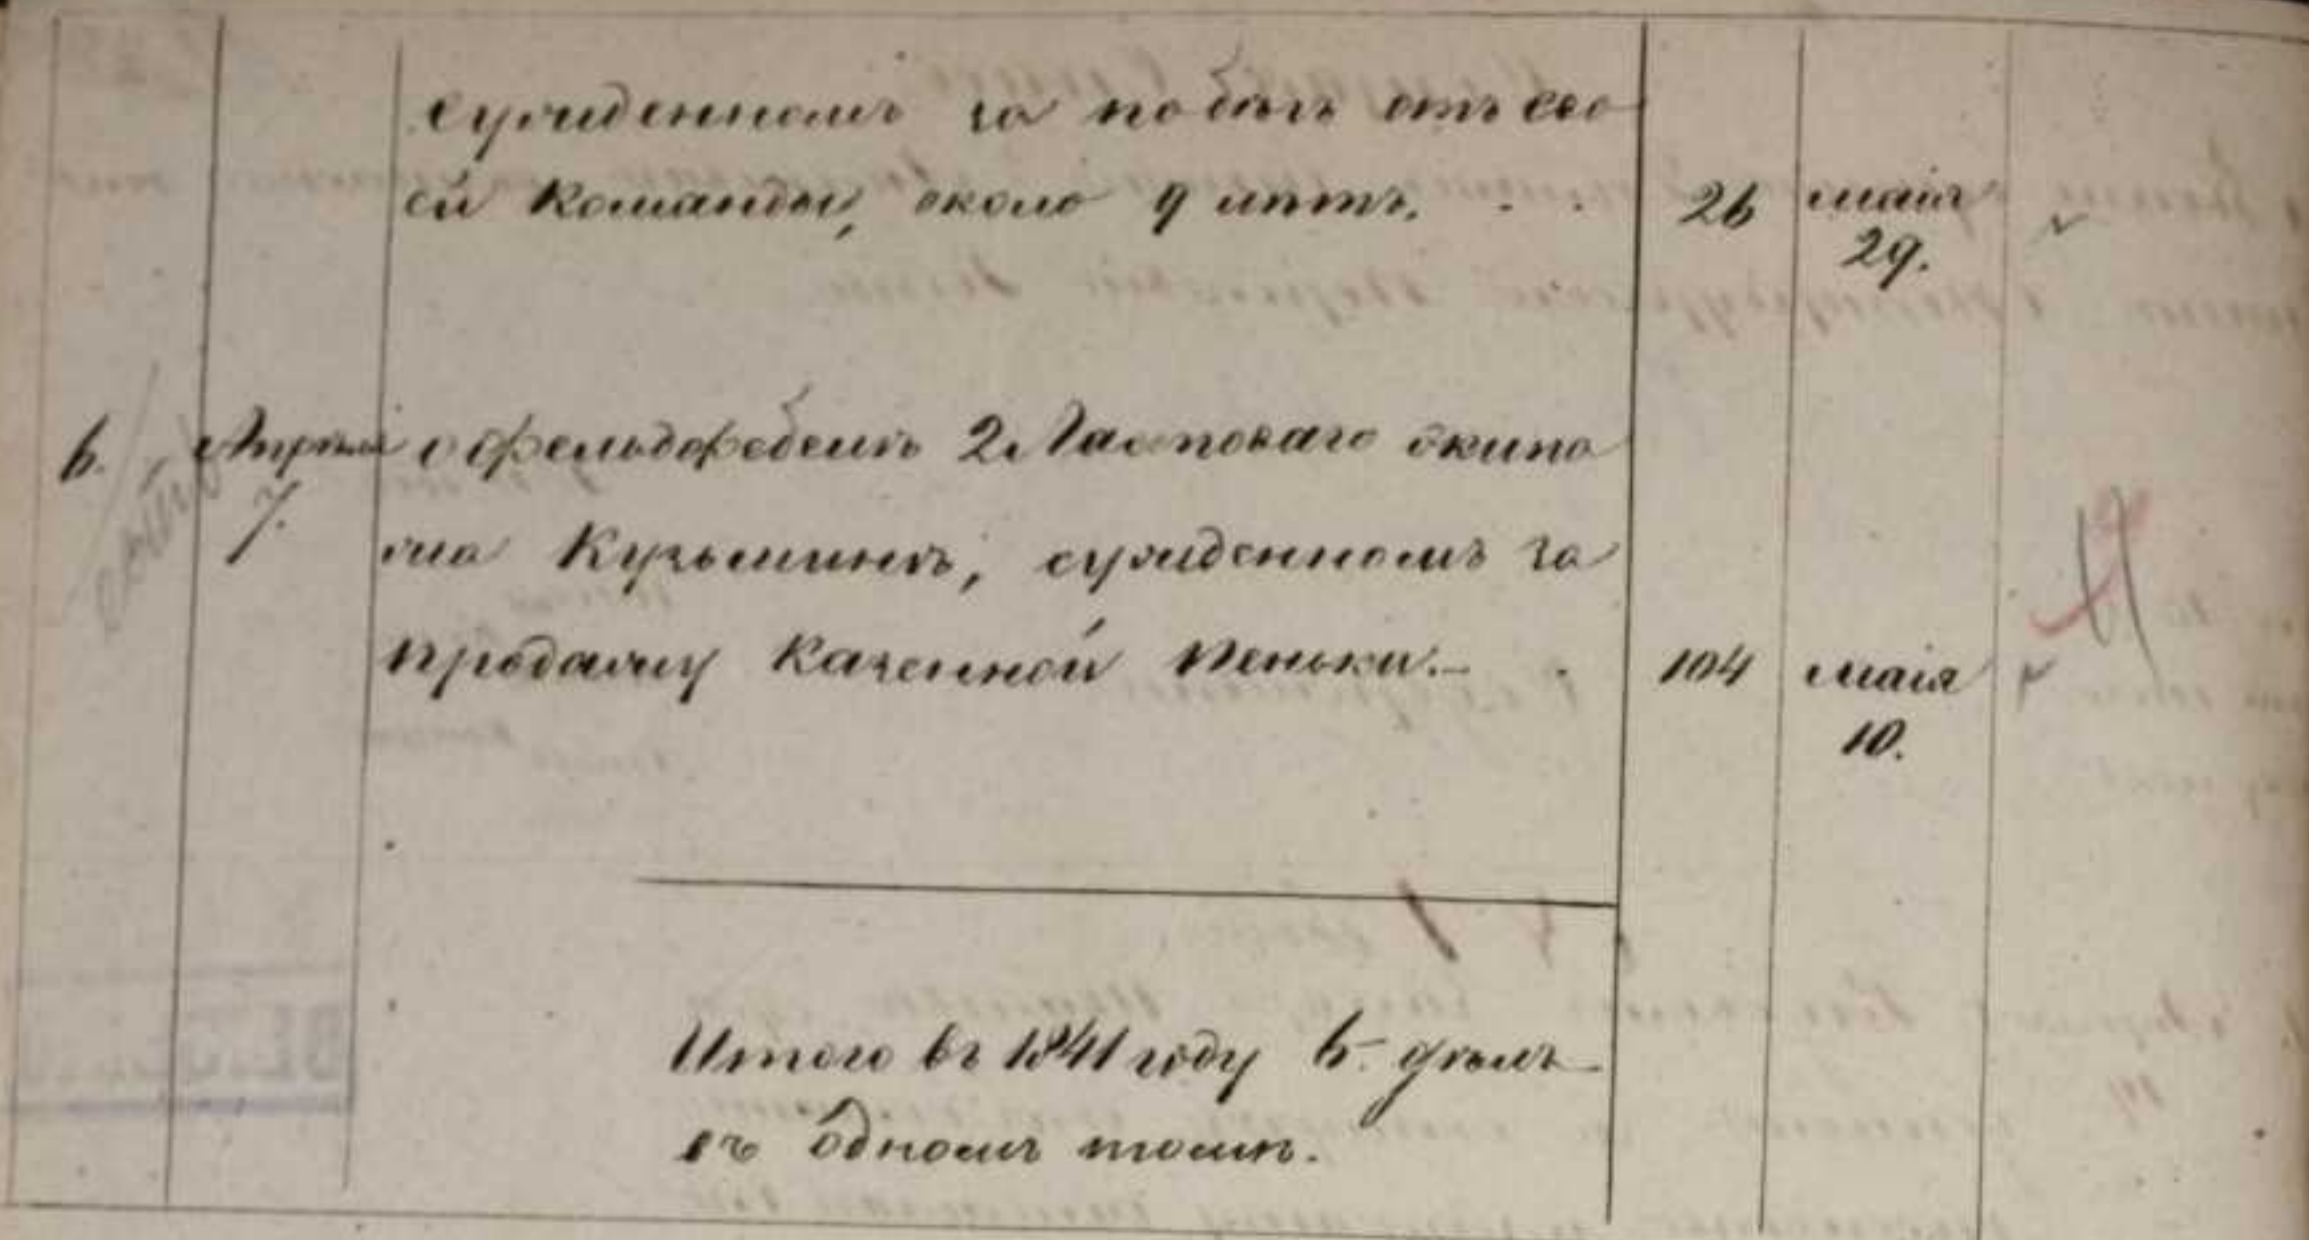 сужденномъ за побѣгъ отъ сво
ей команды, около 9 лѣтъ. 26 маія
29.
6. Апрѣля о фельдфебелѣ 2 Ластоваго экипа
7. жа Кузьминѣ, сужденномъ за
продажу казенной пеньки. 104 маія
10.
Итого въ 1841 году 6. дѣлъ
въ одномъ томѣ.